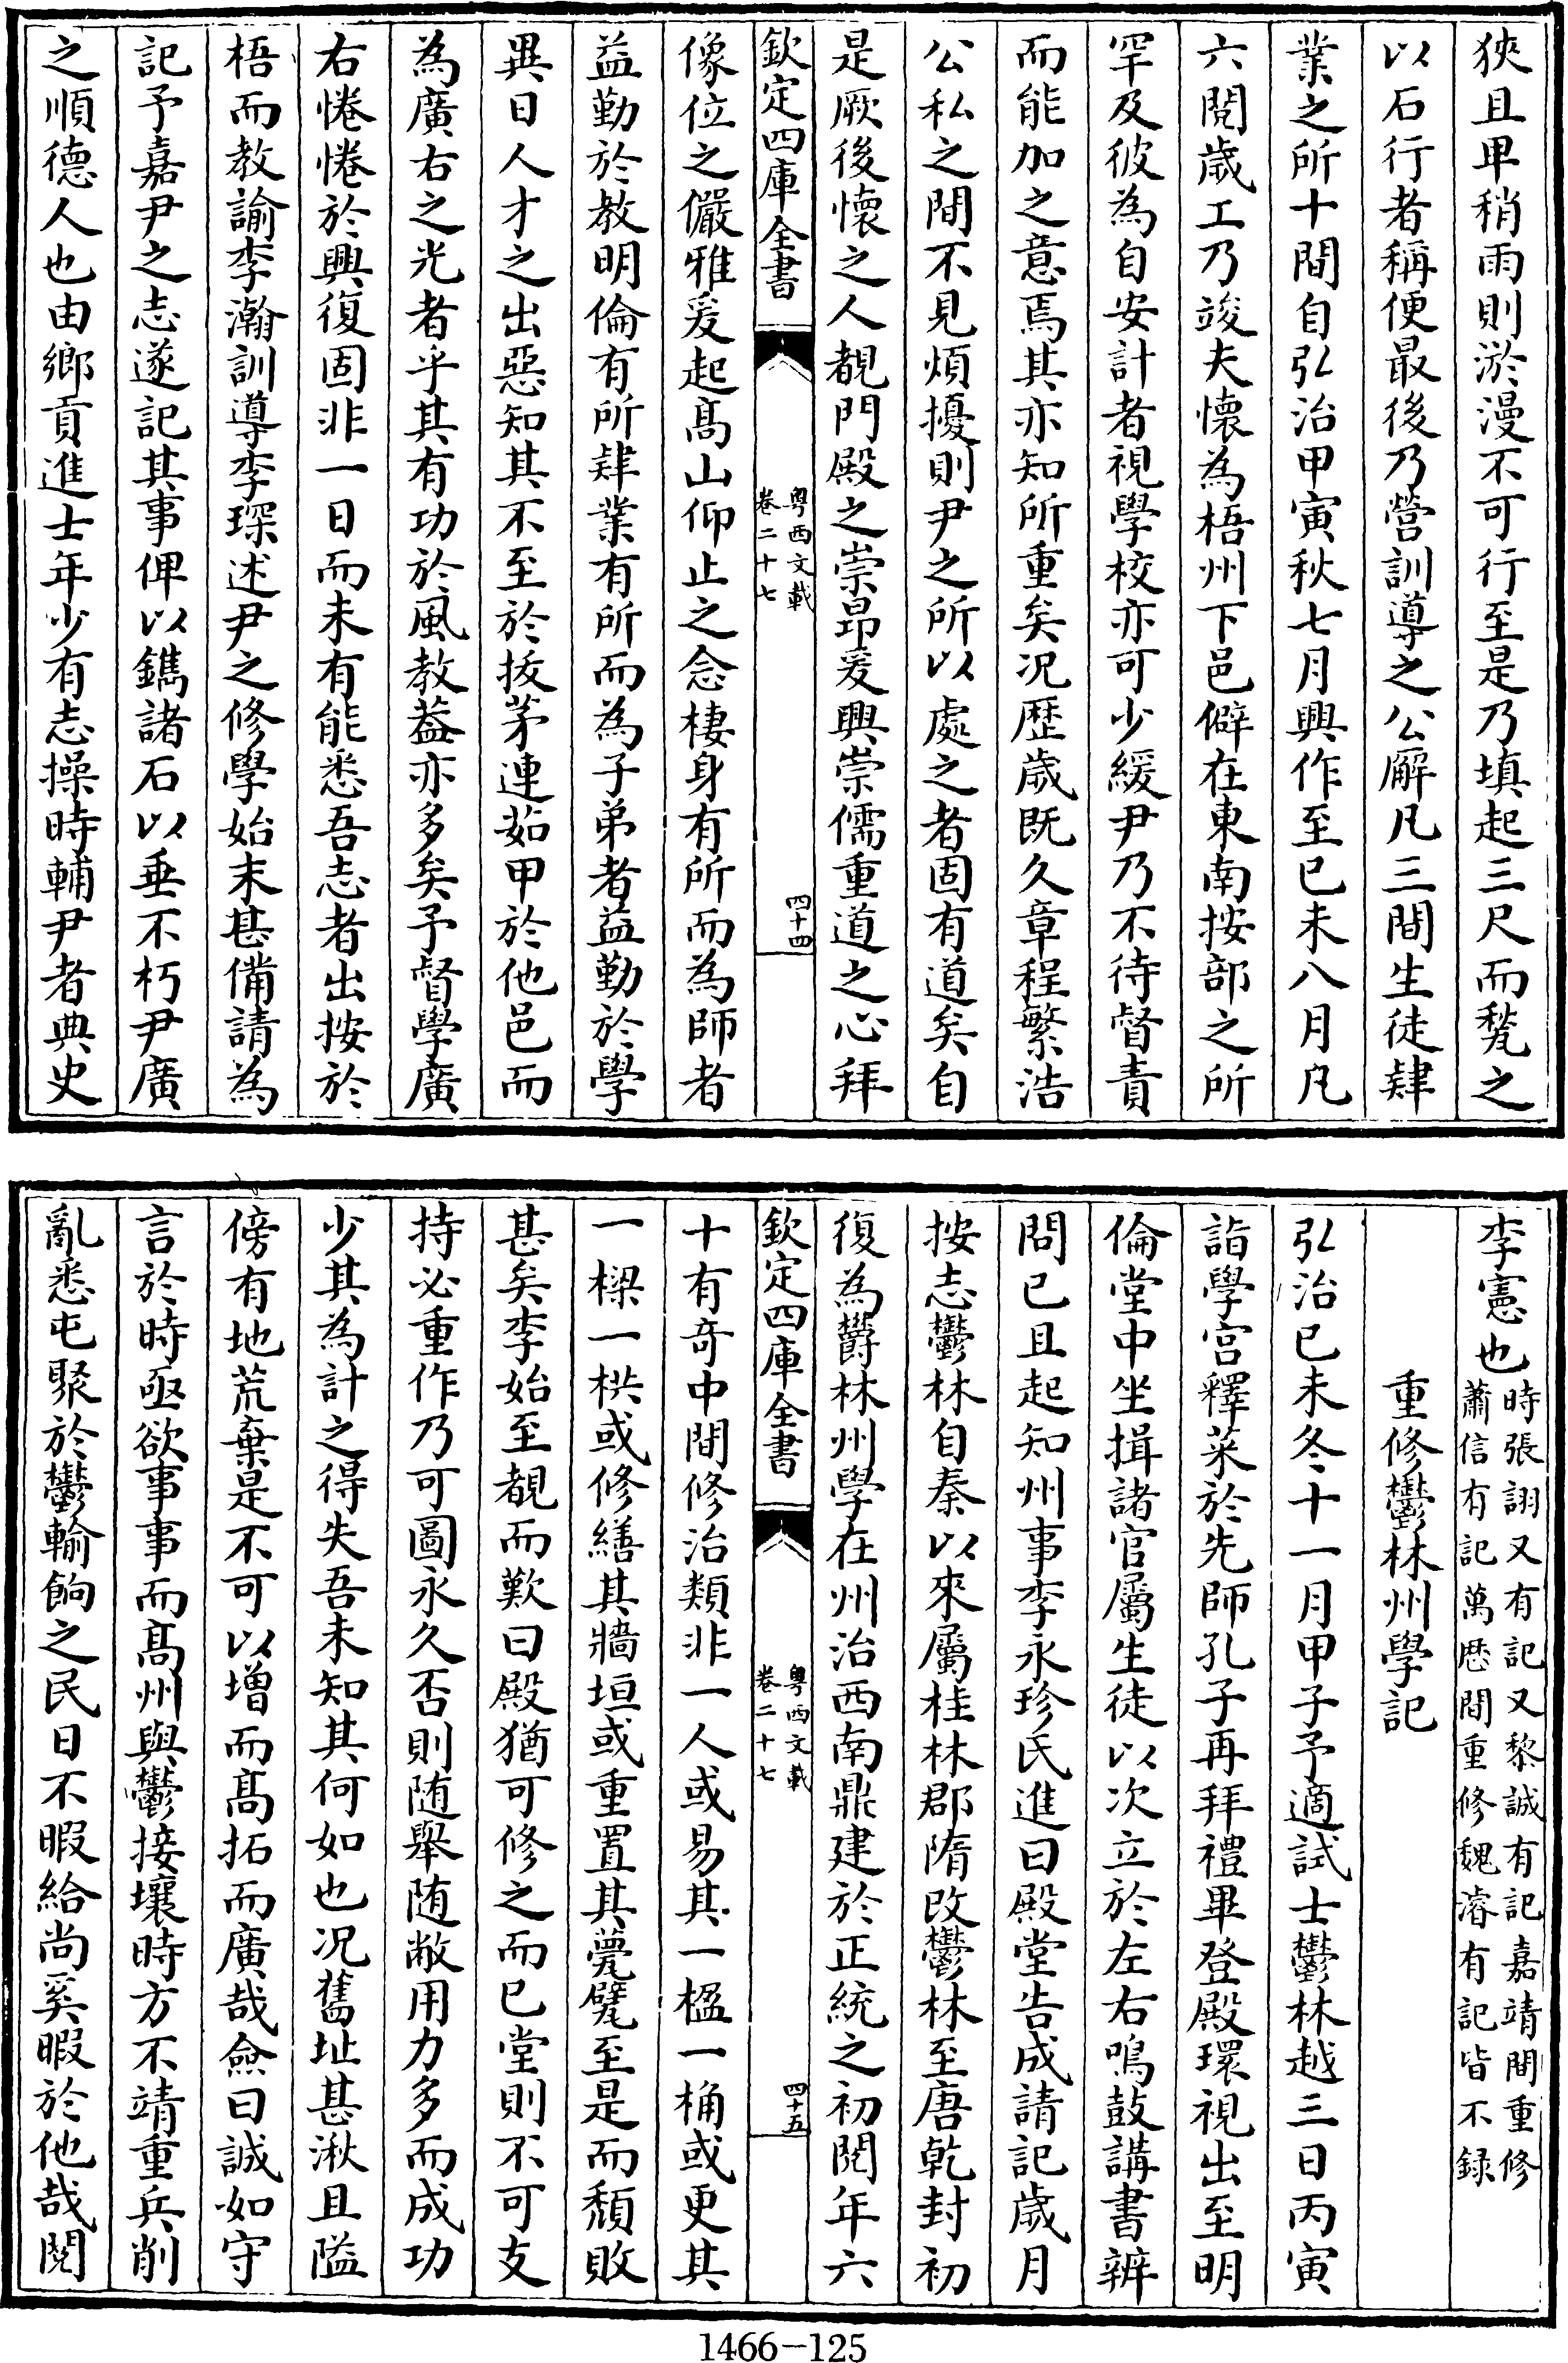 狹且卑稍雨則淤漫不可行至是乃填起三尺而甃之
以石行者稱便最後乃營訓導之公廨凡三間生徒肄
業之所十間自弘治甲寅秋七月興作至已未八月凡
六閱歲工乃竣夫懷為梧州下邑僻在東南按部之所
罕及彼為自安計者視學校亦可少緩尹乃不待督責
而能加之意焉其亦知所重矣况歴歲既久章程繁浩
公私之間不見煩擾則尹之所以處之者固有道矣自
是厥後懷之人覩門殿之崇昂爰興崇儒重道之心拜
欽定四庫全書
粤西文載
卷二十七
四十四
像位之儼雅爰起髙山仰止之念棲身有所而為師者
益勤於教明倫有所肄業有所而為子弟者益勤於學
異日人才之出惡知其不至於拔茅連茹甲於他邑而
為廣右之光者乎其有功於風教葢亦多矣予督學廣
右惓惓於興復固非一日而未有能悉吾志者出按於
梧而教諭李瀚訓導李琛述尹之修學始末甚備請為
記予嘉尹之志遂記其事俾以鐫諸石以垂不朽尹廣
之順德人也由鄉貢進士年少有志操時輔尹者典史
李憲也
時張詡又有記又黎誠有記嘉靖間重修
蕭信有記萬厯間重修魏濬有記皆不録
重修鬱林州學記
弘治已未冬十一月甲子予適試士鬱林越三日丙寅
詣學宫釋菜於先師孔子再拜禮畢登殿環視出至明
倫堂中坐揖諸官屬生徒以次立於左右鳴鼓講書辨
問已且起知州事李永珍氏進曰殿堂告成請記歲月
按志鬱林自秦以來屬桂林郡隋改鬱林至唐乾封初
復為欝林州學在州治西南鼎建於正統之初閱年六
欽定四庫全書
粤西文載
卷二十七
四十五
十有奇中間修治類非一人或易其一楹一桷或更其
一樑一栱或修繕其牆垣或重置其甍甓至是而頽敗
甚矣李始至覩而歎曰殿猶可修之而已堂則不可支
持必重作乃可圖永久否則随舉随敝用力多而成功
少其為計之得失吾未知其何如也况舊址甚湫且隘
傍有地荒棄是不可以增而髙拓而廣哉僉曰誠如守
言於時亟欲事事而髙州與鬱接壤時方不靖重兵削
亂悉屯聚於鬱輸餉之民日不暇給尚奚暇於他哉閱
1466-125